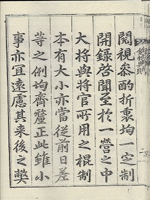 閱視叅酌折衷均一定制
開錄啓聞至於一營之中
大將與將官所用之棍制
本有大小亦當從前日差
等之例均齊釐正此雖小
事亦宜遠慮其來後之獘